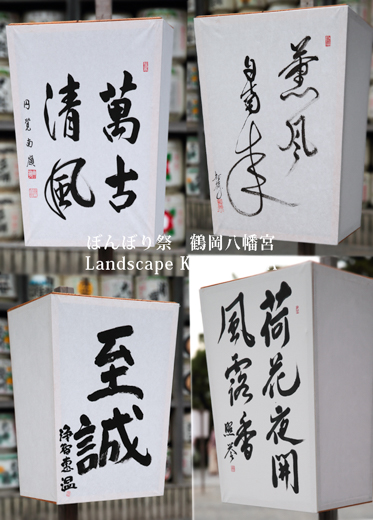 萬古
清風
円覚南嶺
薫風
自南来
ぼんぼり祭　鶴岡八幡宮
Landscape K
至誠
浄智恵温
荷花夜開
風露香